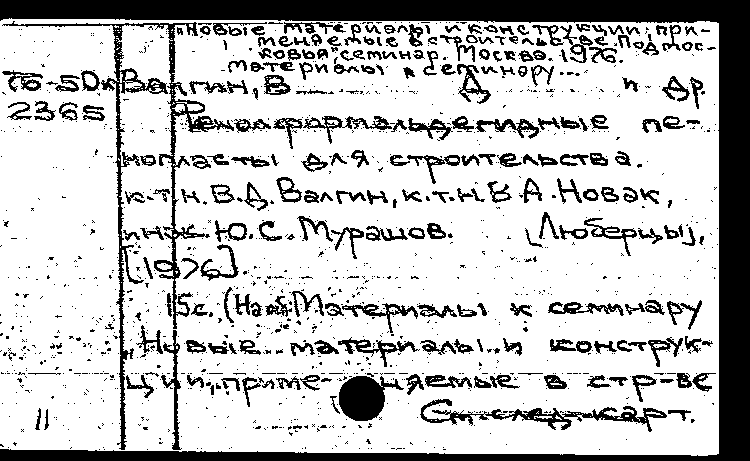 "Новые материалы и конструкции, при-
меняемые в строительстве Подмос-
ковья", семинар. Москва. 1976.
Материалы к семинару...
76-50к Валгин, В Д и др.
2365 Фенолформальдегидные пе-
нопласты для строительства.
к.т.н. В.Д. Валгин, к.т.н. В.А. Новак,
инж. Ю.С. Мурашов. [Люберцы],
[1976].
15с. (Материалы к семинару
"Новые материалы и конструк-
ции, приме- няемые в стр-ве
См. след. карт.
11